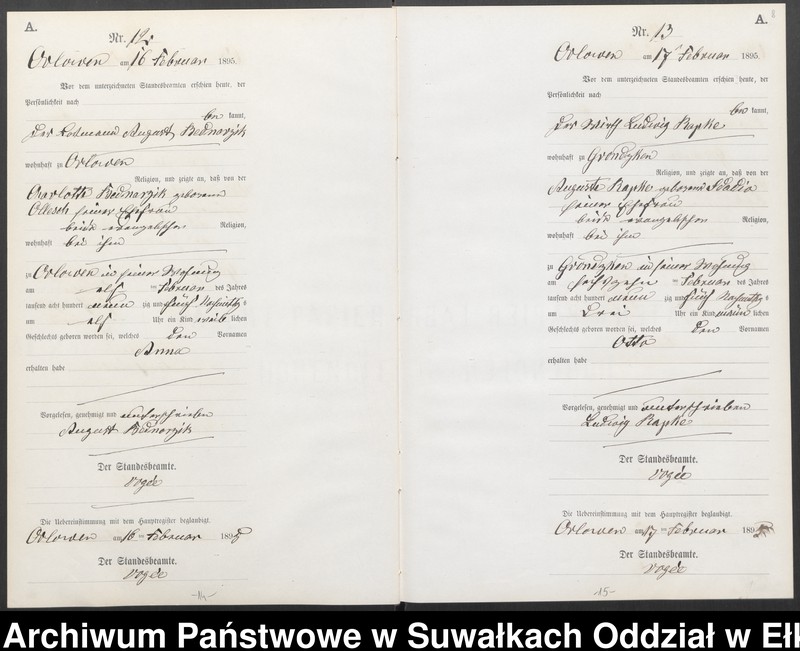 A.
Nr. 12
Orlowen am 16 Februar 1895.
Vor dem unterzeichneten Standesbeamten erschien heute, der
Persönlichkeit nach
be kannt,
der Losmann August Bednarzik
wohnhaft zu Orlowen
Religion, und zeigte an, daß von der
Charlotte Bednarzik geborenen
Olesch seiner Ehefrau
beide evangelischer Religion,
wohnhaft bei ihm
zu Orlowen in seiner Wohnung
am elf ten Februar des Jahres
tausend acht hundert neun zig und fünf Nachmittags
um elf Uhr ein Kind weib lichen
Geschlechts geboren worden sei, welches den Vornamen
Anna
erhalten habe
Vorgelesen, genehmigt und unterschrieben
August Bednarzik
Der Standesbeamte.
Vogée
Die Uebereinstimmung mit dem Hauptregister beglaubigt.
Orlowen am 16 ten Februar 1895
Der Standesbeamte.
Vogée
-14-
A.
Nr. 13
Orlowen am 17 Februar 1895.
Vor dem unterzeichneten Standesbeamten erschien heute, der
Persönlichkeit nach
be kannt,
der Wirth Ludwig Rapke
wohnhaft zu Grondzken
Religion, und zeigte an, daß von der
Auguste Rapke geborenen
seiner Ehefrau
beide evangelischer Religion,
wohnhaft bei ihm
zu Grondzken in seiner Wohnung
am sechszehn ten Februar des Jahres
tausend acht hundert neun zig und fünf Nachmittags
um drei Uhr ein Kind männ lichen
Geschlechts geboren worden sei, welches den Vornamen
Otto
erhalten habe
Vorgelesen, genehmigt und unterschrieben
Ludwig Rapke
Der Standesbeamte.
Vogée
Die Uebereinstimmung mit dem Hauptregister beglaubigt.
Orlowen am 17 ten Februar 189
Der Standesbeamte.
Vogée
-15-
Archiwum Państwowe w Suwałkach Oddział w Ełk